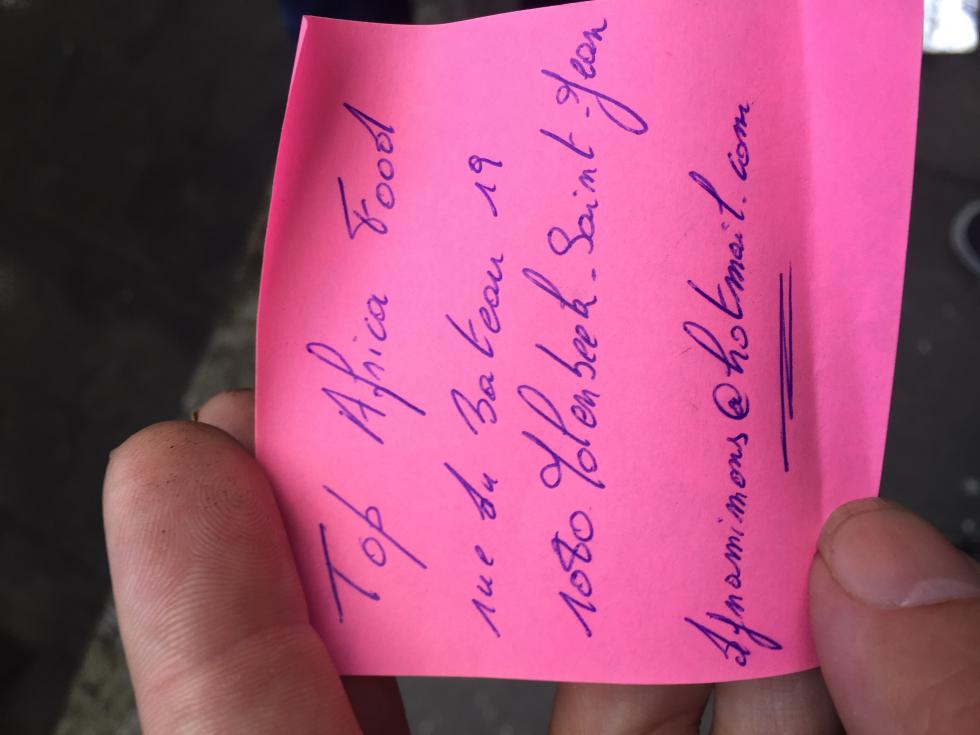 Top Africa Food
rue du Bateau 19
1080 Molenbeek-Saint-Jean
dynamimons@hotmail.com